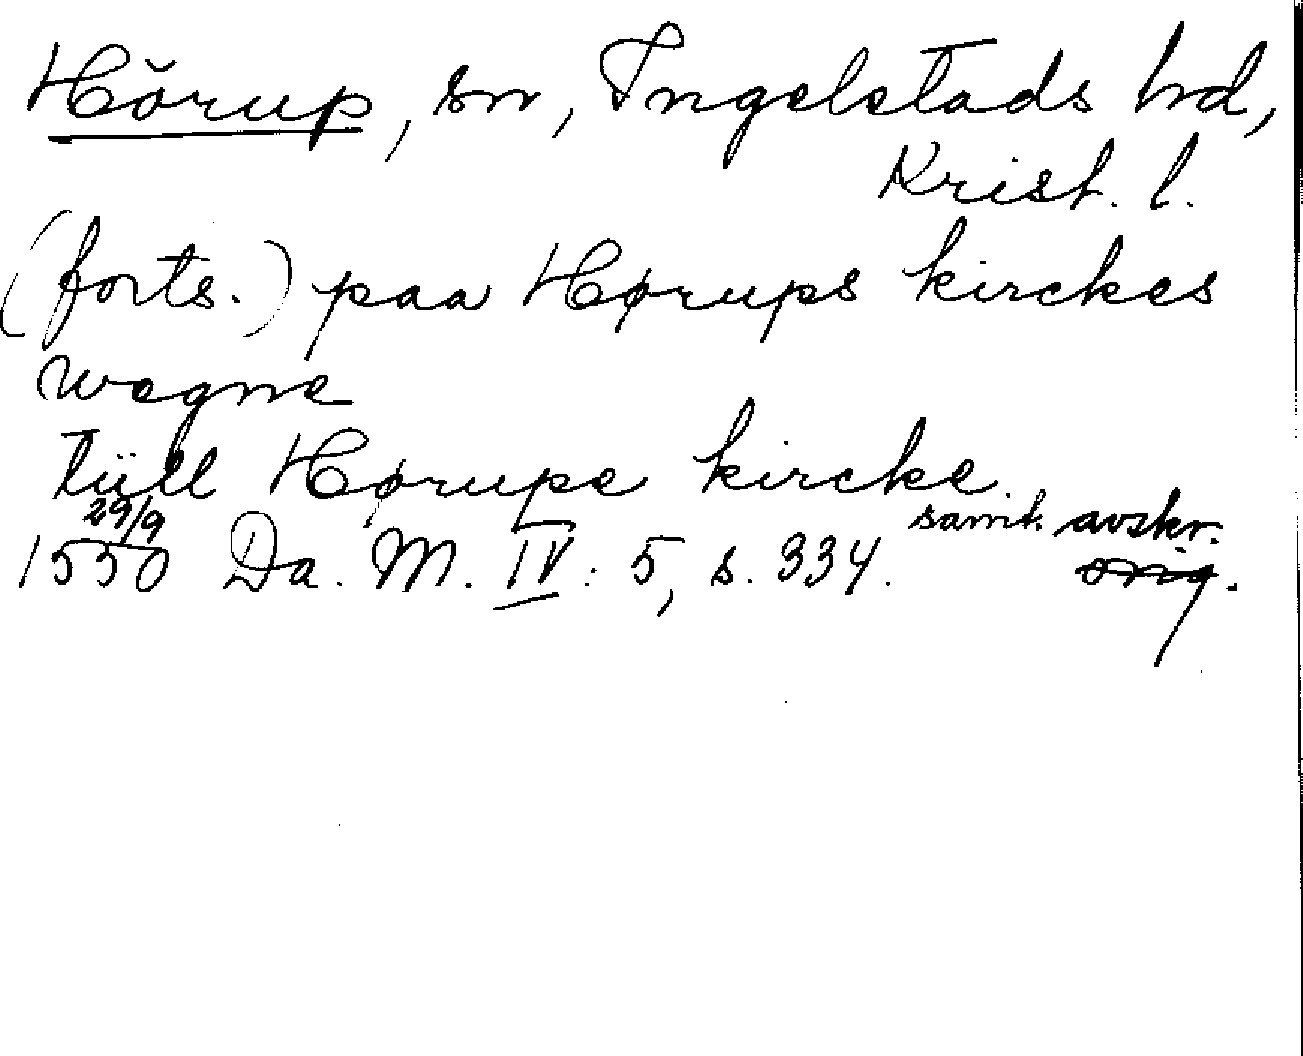 Hörup, sn, Ingelstads hd,
Krist. l.
(forts.) paa Hørups kirckes
wegne
tüll Hørupe kircke.
29/9 samt. avskr.
1550 Da. M. IV: 5, s. 334. orig.